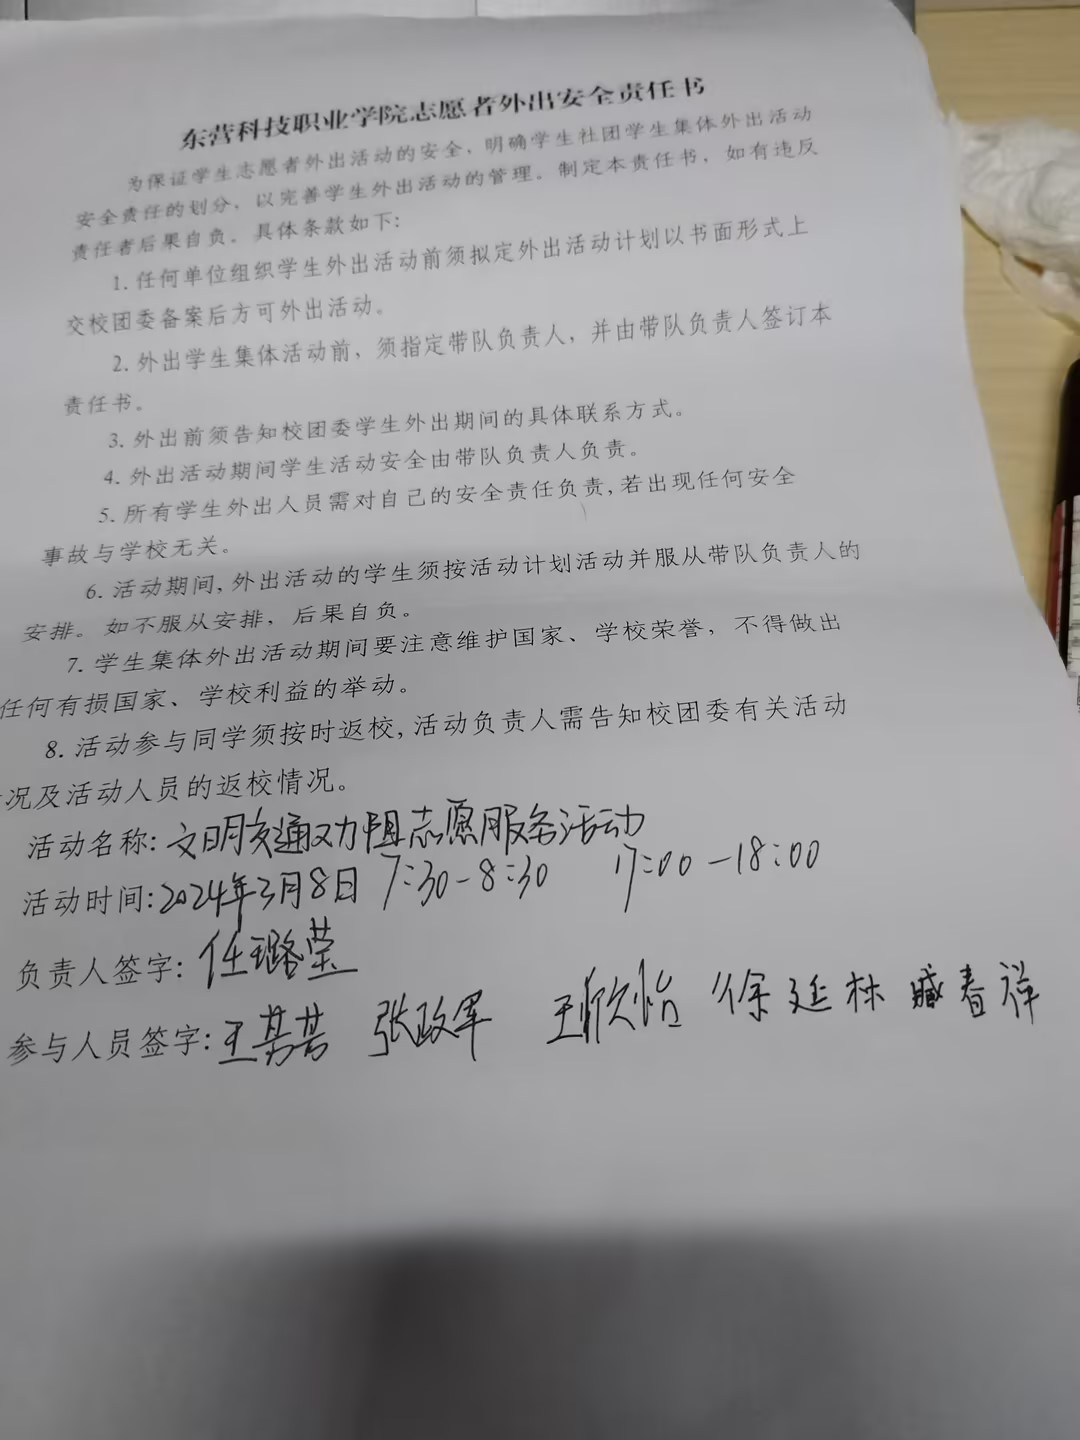 东营科技职业学院志愿者外出安全责任书
为保证学生志愿者外出活动的安全，明确学生社团学生集体外出活动
安全责任的划分，以完善学生外出活动的管理。制定本责任书，如有违反
责任者后果自负。具体条款如下：
1. 任何单位组织学生外出活动前须拟定外出活动计划以书面形式上
交校团委备案后方可外出活动。
2. 外出学生集体活动前，须指定带队负责人，并由带队负责人签订本
责任书。
3. 外出前须告知校团委学生外出期间的具体联系方式。
4. 外出活动期间学生活动安全由带队负责人负责。
5. 所有学生外出人员需对自己的安全责任负责,若出现任何安全
事故与学校无关。
6. 活动期间,外出活动的学生须按活动计划活动并服从带队负责人的
安排。如不服从安排，后果自负。
7. 学生集体外出活动期间要注意维护国家、学校荣誉，不得做出
任何有损国家、学校利益的举动。
8. 活动参与同学须按时返校,活动负责人需告知校团委有关活动
况及活动人员的返校情况。
活动名称: 文明交通劝阻志愿服务活动
活动时间:2024年3月8日 7:30-8:30 17:00-18:00
负责人签字: 任璐莹
参与人员签字: 张政军 王欣怡 徐延林 臧春祥